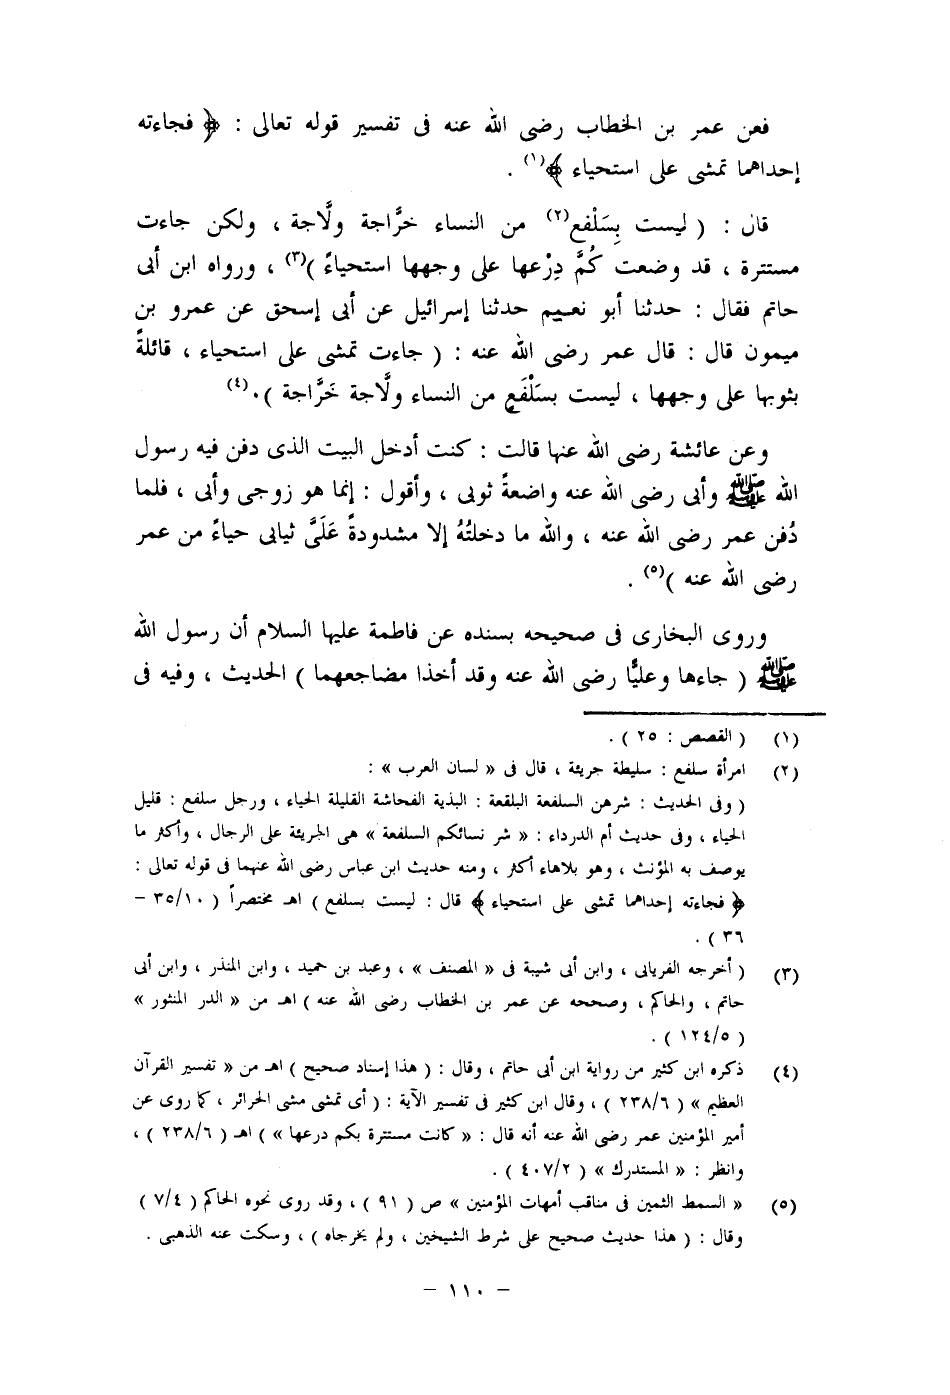 فعن عمر بن الخطاب رضى الله عنه فى تفسير قوله تعالى : ﴿ فجاءته
إحداهما تمشى على استحياء ﴾(١) .
قال : ( ليست بِسَلْفع(٢) من النساء خرَّاجة ولَّاجة ، ولكن جاءت
مستترة ، قد وضعت كُمَّ دِرْعها على وجهها استحياءً )(٣) ، ورواه ابن أبى
حاتم فقال : حدثنا أبو نعيم حدثنا إسرائيل عن أبى إسحق عن عمرو بن
ميمون قال : قال عمر رضى الله عنه : ( جاءت تمشى على استحياء ، قائلةً
بثوبها على وجهها ، ليست بسَلْفَعٍ من النساء ولَّاجة خَرَّاجة ).(٤)
وعن عائشة رضى الله عنها قالت : كنت أدخل البيت الذى دفن فيه رسول
الله ﷺ وأبى رضى الله عنه واضعةً ثوبى ، وأقول : إنما هو زوجى وأبى ، فلما
دُفن عمر رضى الله عنه ، والله ما دخلتُهُ إلا مشدودةً عَلَىَّ ثيابى حياءً من عمر
رضى الله عنه )(٥) .
وروى البخارى فى صحيحه بسنده عن فاطمة عليها السلام أن رسول الله
ﷺ ( جاءها وعليًّا رضى الله عنه وقد أخذا مضاجعهما ) الحديث ، وفيه فى
(١) ( القصص : ٢٥ ) .
(٢) امرأة سلفع : سليطة جريئة ، قال فى « لسان العرب » :
( وفى الحديث : شرهن السلفعة البلقعة : البذية الفحاشة القليلة الحياء ، ورجل سلفع : قليل
الحياء ، وفى حديث أم الدرداء : « شر نسائكم السلفعة » هى الجريئة على الرجال ، وأكثر ما
يوصف به المؤنث ، وهو بلاهاء أكثر ، ومنه حديث ابن عباس رضى الله عنهما فى قوله تعالى :
﴿ فجاءته إحداهما تمشى على استحياء ﴾ قال : ليست بسلفع ) اهـ مختصراً ( ٣٥/١٠ –
٣٦ ) .
(٣) ( أخرجه الفريابى ، وابن أبى شيبة فى « المصنف » ، وعبد بن حميد ، وابن المنذر ، وابن أبى
حاتم ، والحاكم ، وصححه عن عمر بن الخطاب رضى الله عنه ) اهـ من « الدر المنثور »
( ١٢٤/٥ ) .
(٤) ذكره ابن كثير من رواية ابن أبى حاتم ، وقال : ( هذا إسناد صحيح ) اهـ من « تفسير القرآن
العظيم » ( ٢٣٨/٦ ) ، وقال ابن كثير فى تفسير الآية : ( أى تمشى مشى الحرائر ، كما روى عن
أمير المؤمنين عمر رضى الله عنه أنه قال : « كانت مستترة بكم درعها » ) اهـ ( ٢٣٨/٦ ) ،
وانظر : « المستدرك » ( ٤٠٧/٢ ) .
(٥) « السمط الثمين فى مناقب أمهات المؤمنين » ص ( ٩١ ) ، وقد روى نحوه الحاكم ( ٧/٤ )
وقال : ( هذا حديث صحيح على شرط الشيخين ، ولم يخرجاه ) ، وسكت عنه الذهبى .
– ١١٠ –